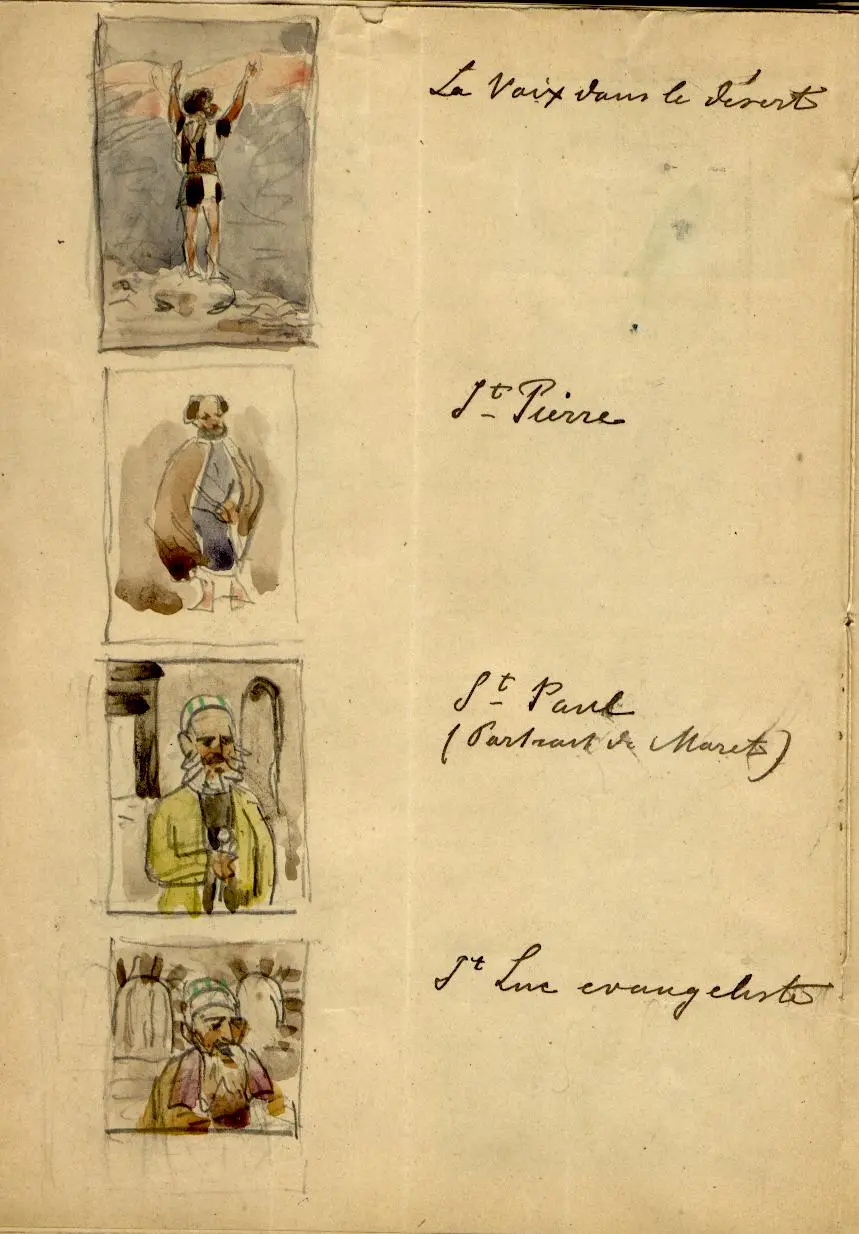 La Voix dans le désert
St Pierre
St Paul
(Portrait de Maret)
St Luc evangeliste